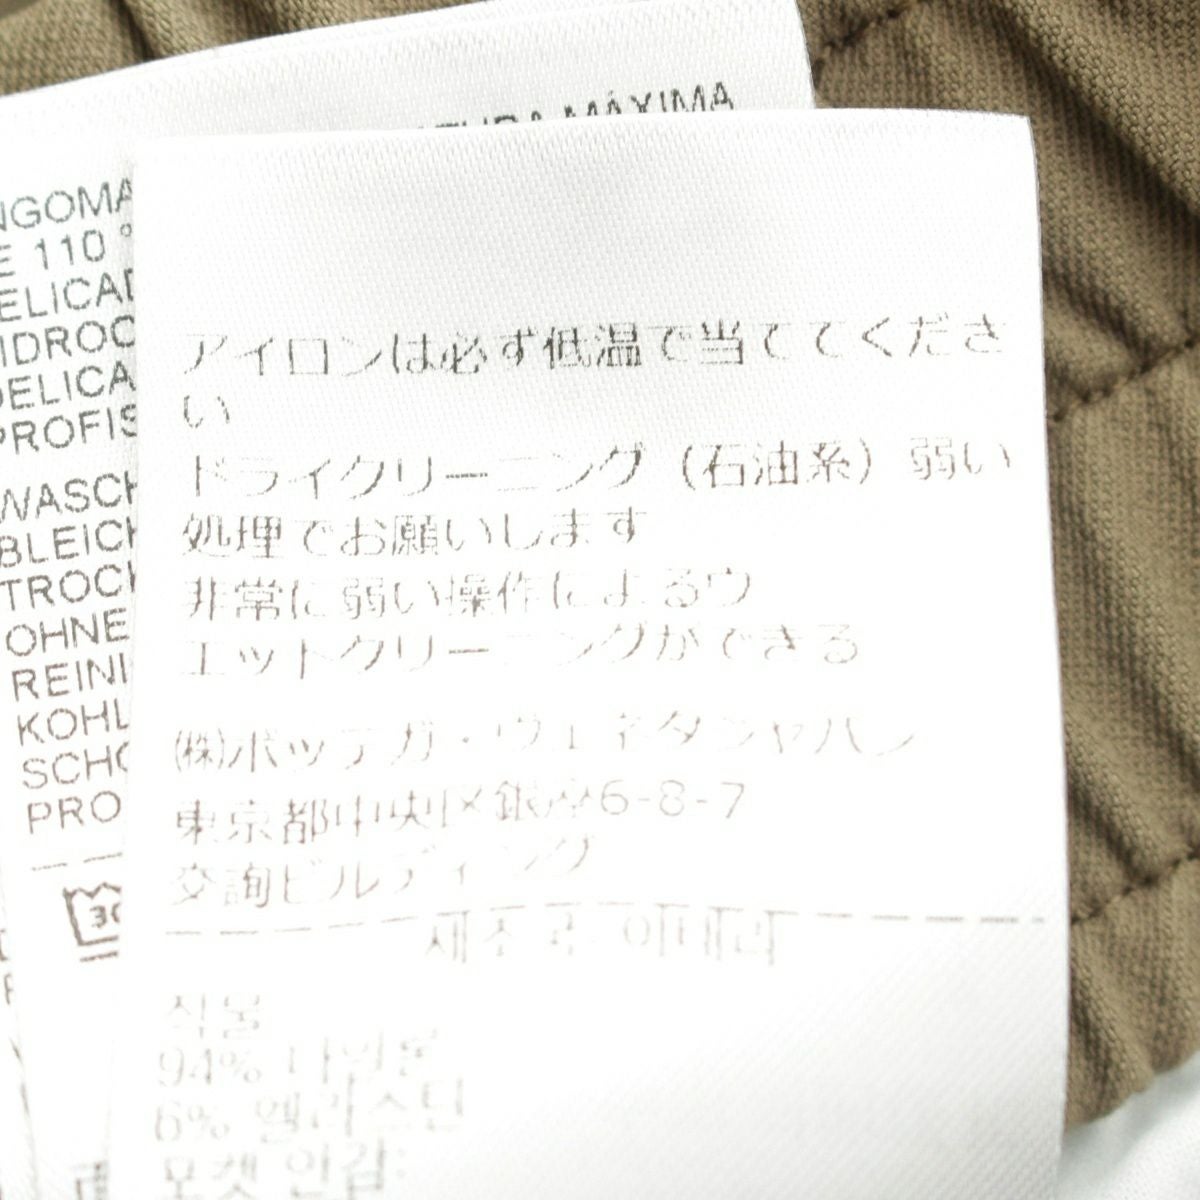 MÁXIMA
E 110 °
WASCH
BLEICH
TROCK
OHNE
REINI
KOHL
SCHO
PRO
30
アイロンは必ず低温で当ててくださ
い
ドライクリーニング（石油系）弱い
処理でお願いします
非常に弱い操作によるウ
エットクリーニングができる
㈱ボッテガ・ヴェネタジャパン
東京都中央区銀座6-8-7
交詢ビルディング
제조국: 이태리
직물
94% 나일론
6% 엘라스틴
포켓 안감: